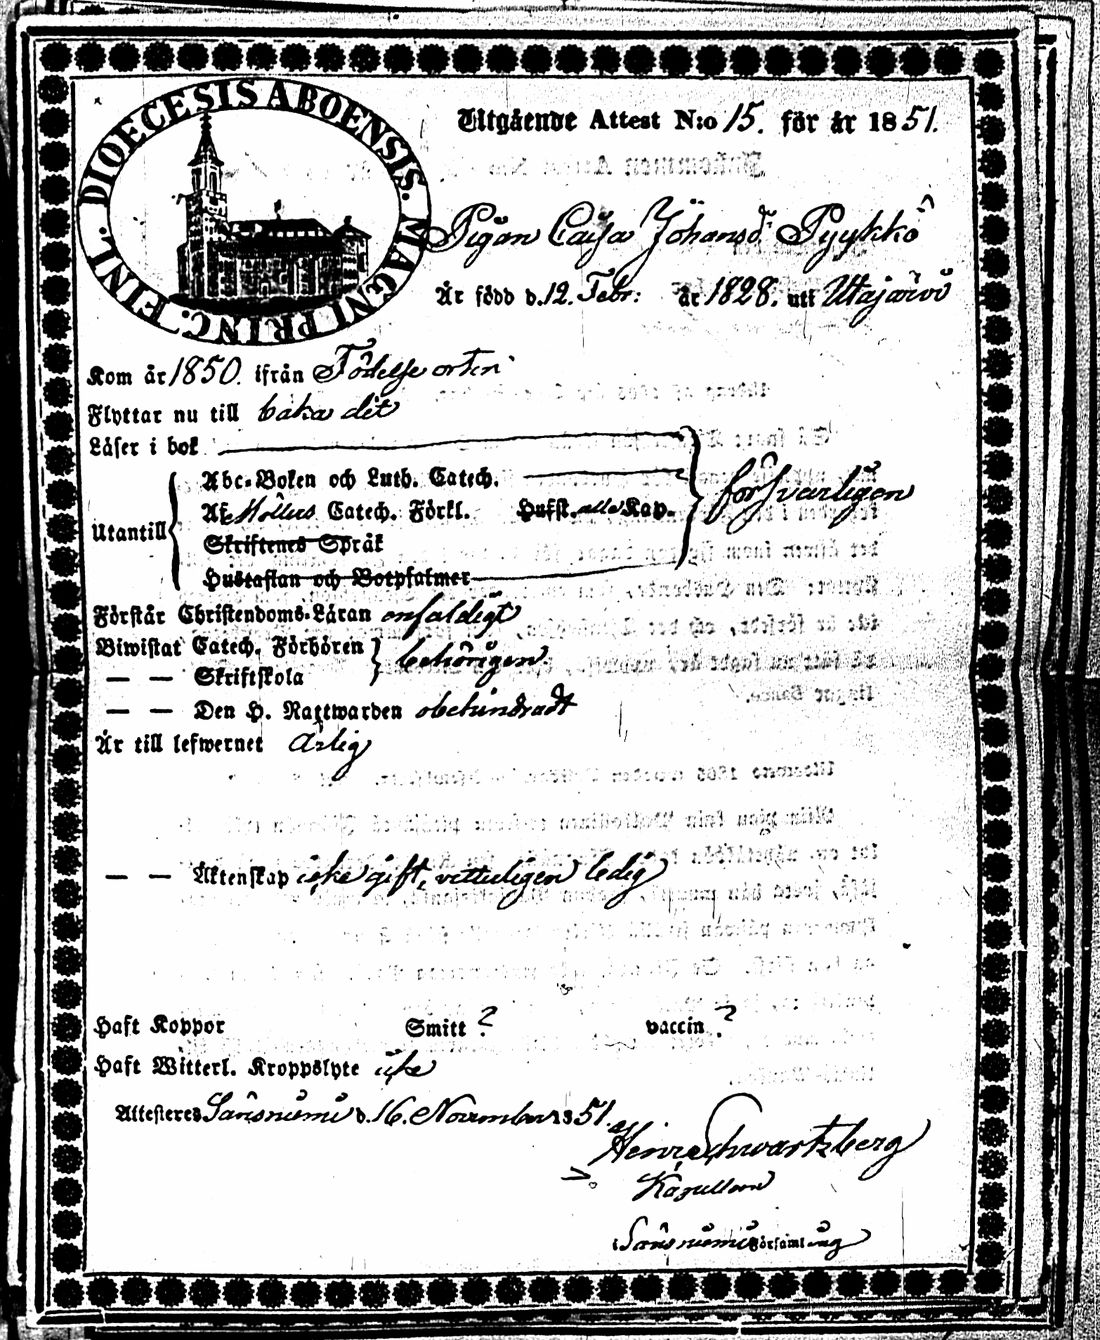 DIOECESIS ABOENSIS. MAGNI PRINC. FINL.
Utgående Attest N:o 15. för år 1851.
Pigan Caisa Johansd Pyykkö
Är född d. 12. Febr: år 1828. uti Utajärvi
Kom år 1850. ifrån Födelse orten
Flyttar nu till baka dit
Läser i bok
Abc-Boken och Luth. Catech.
Utantill Af Möllers Catech. Förkl. Hufst. alla Kap. försvarligen
Skriftenes Språk
Hustaflan och Botpsalmer
Förstår Christendoms-Läran enfaldigt
Biwistat Catech. Förhören
behörigen.
— — Skriftskola
— — Den H. Nattwarden obehindradt
Är till lefwernet ärlig
— — Äktenskap icke gift, vitterligen ledig
Haft Koppor Smitt ? vaccin ?
Haft Witterl. Kroppslyte icke
Attesteres Saarisniemi d. 16. November 1851.
Henr Schwartzberg
Kapellan
i församling